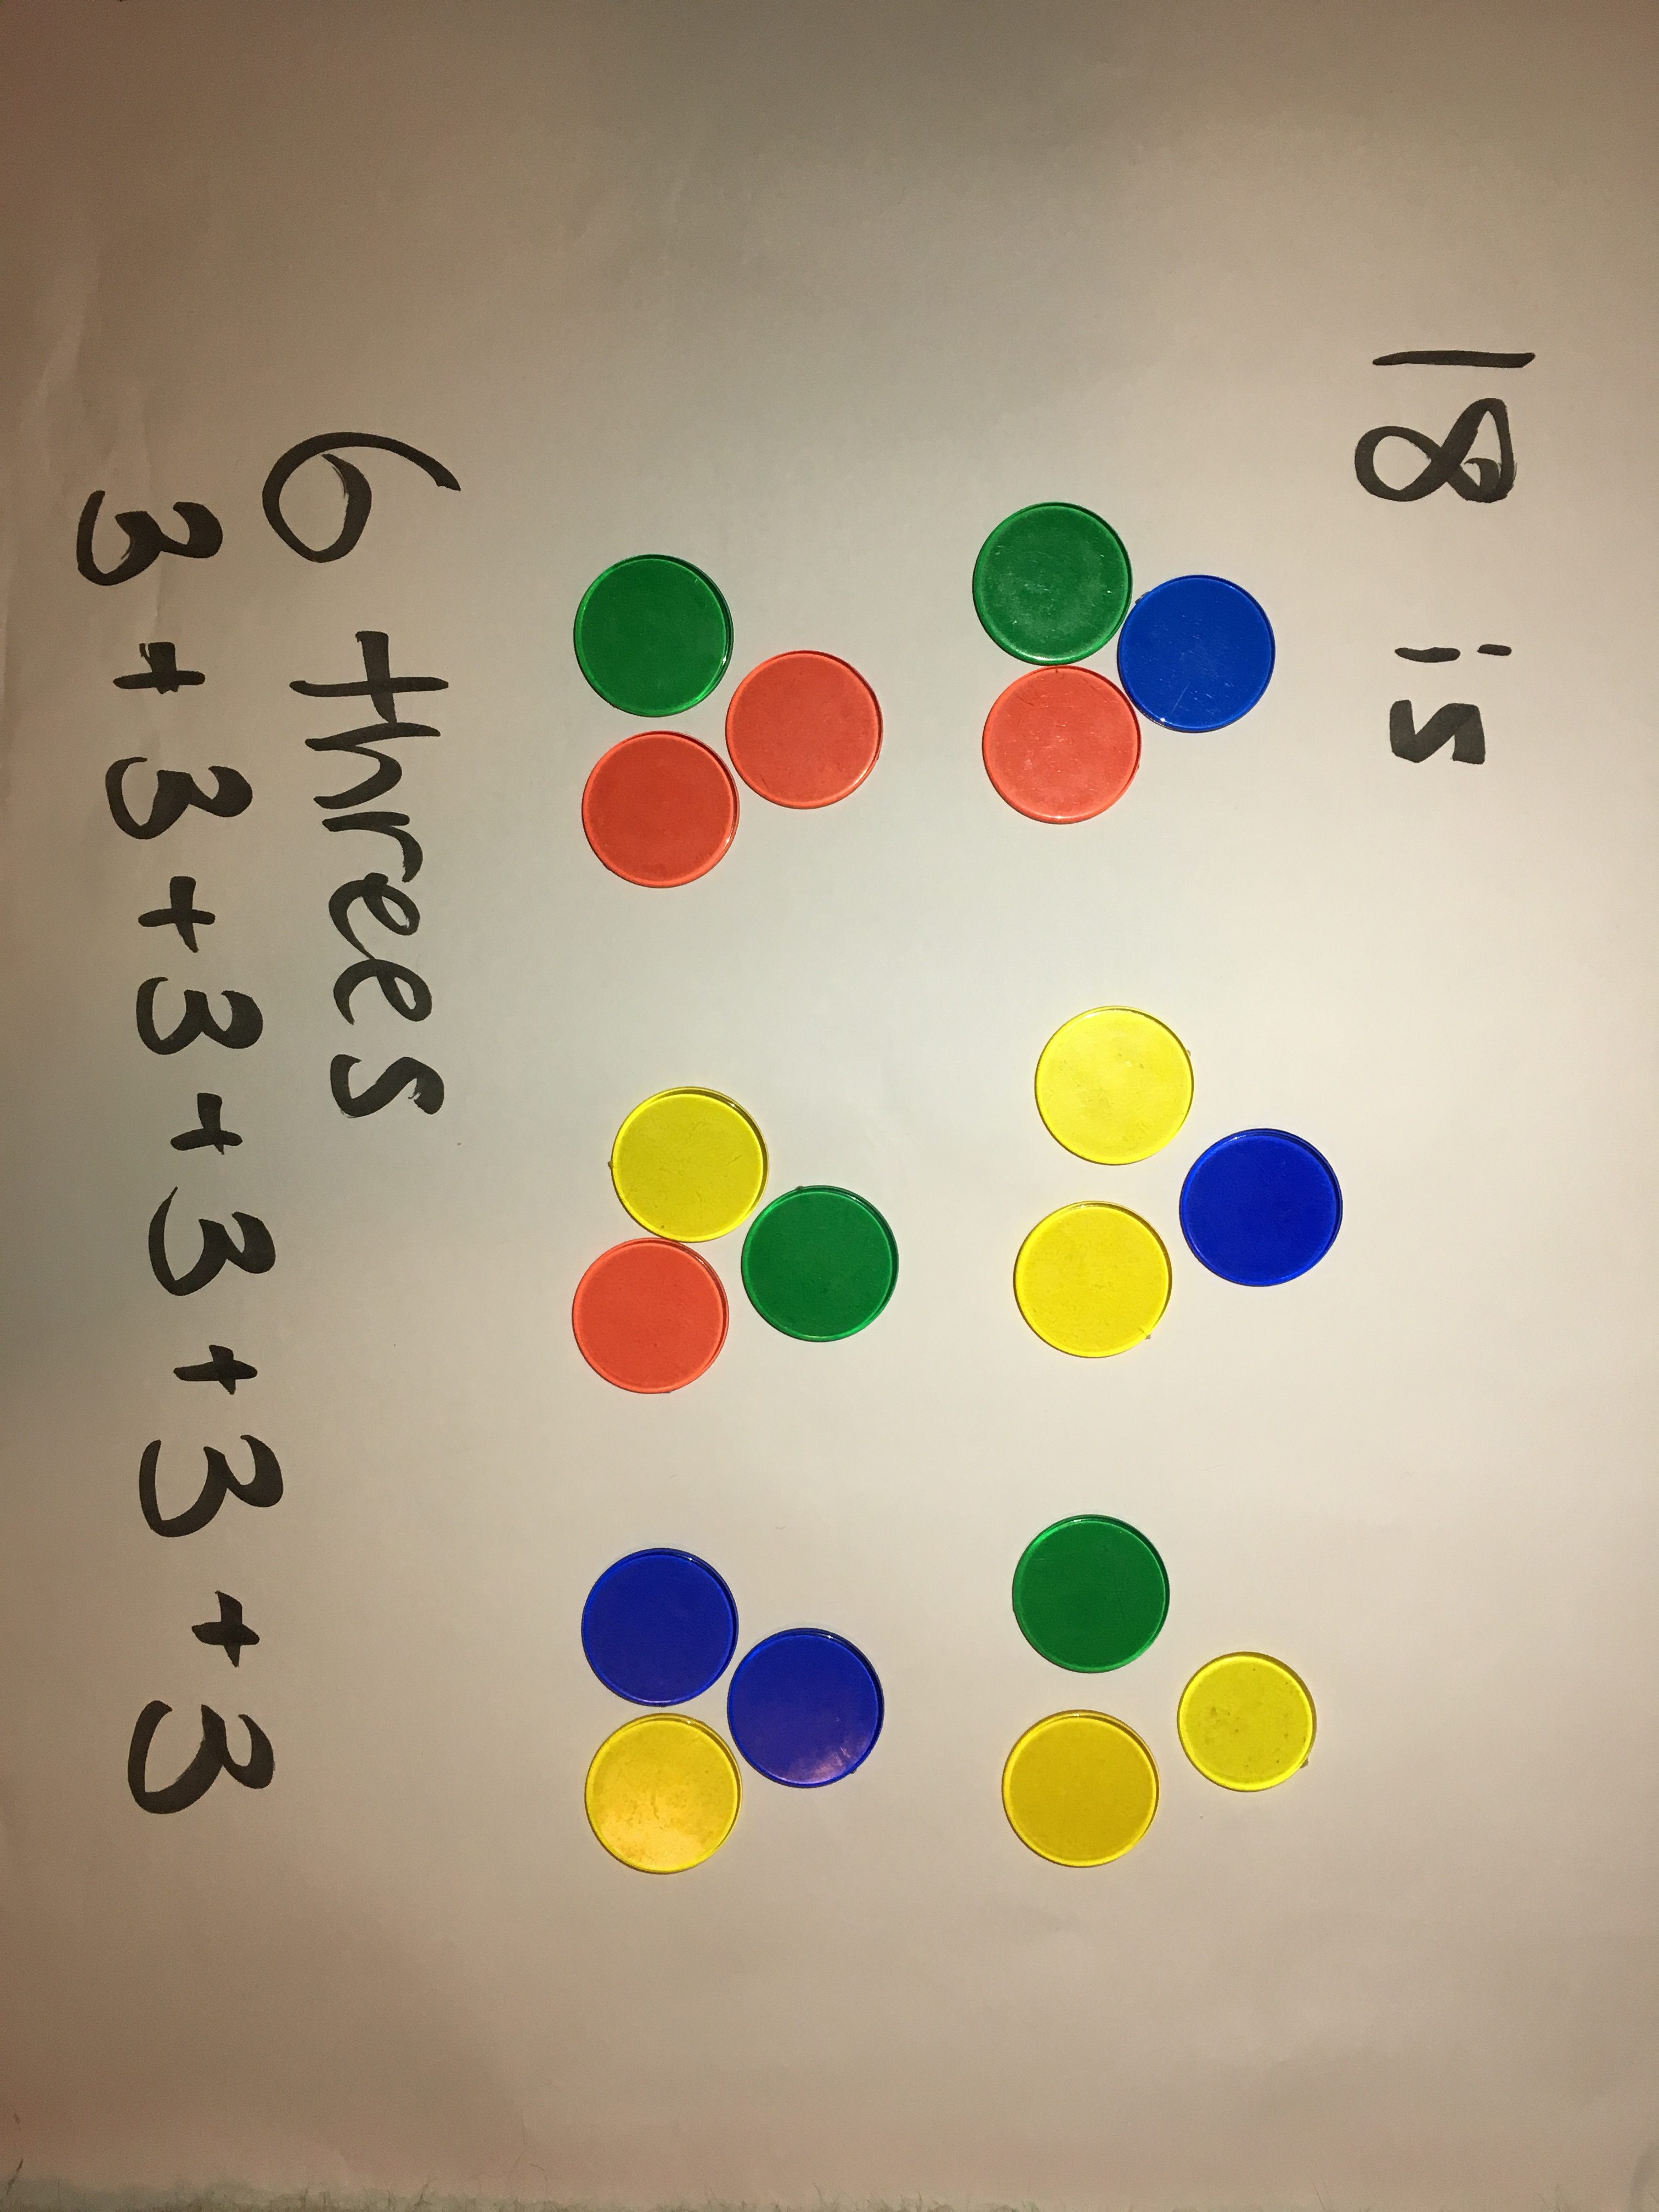 18 is
6 threes
3 + 3 + 3 + 3 + 3 + 3